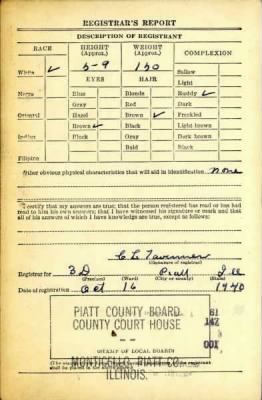 REGISTRAR'S REPORT
DESCRIPTION OF REGISTRANT
RACE HEIGHT (Approx.) WEIGHT (Approx.) COMPLEXION
White ✓ 5-9 150 Sallow
EYES HAIR Light
Negro Blue Blonde Ruddy ✓
Gray Red Dark
Oriental Hazel Brown ✓ Freckled
Brown ✓ Black Light brown
Indian Black Gray Dark brown
Bald Black
Filipino
Other obvious physical characteristics that will aid in identification none
I certify that my answers are true; that the person registered has read or has had
read to him his own answers; that I have witnessed his signature or mark and that
all of his answers of which I have knowledge are true, except as follows:
(Signature of registrar)
Registrar for 3 D Piatt Ill
(Precinct) (Ward) (City or county) (State)
Date of registration Oct 16 1940
PIATT COUNTY BOARD 61
COUNTY COURT HOUSE 147
001
(STAMP OF LOCAL BOARD)
MONTICELLO, PIATT CO.
ILLINOIS.